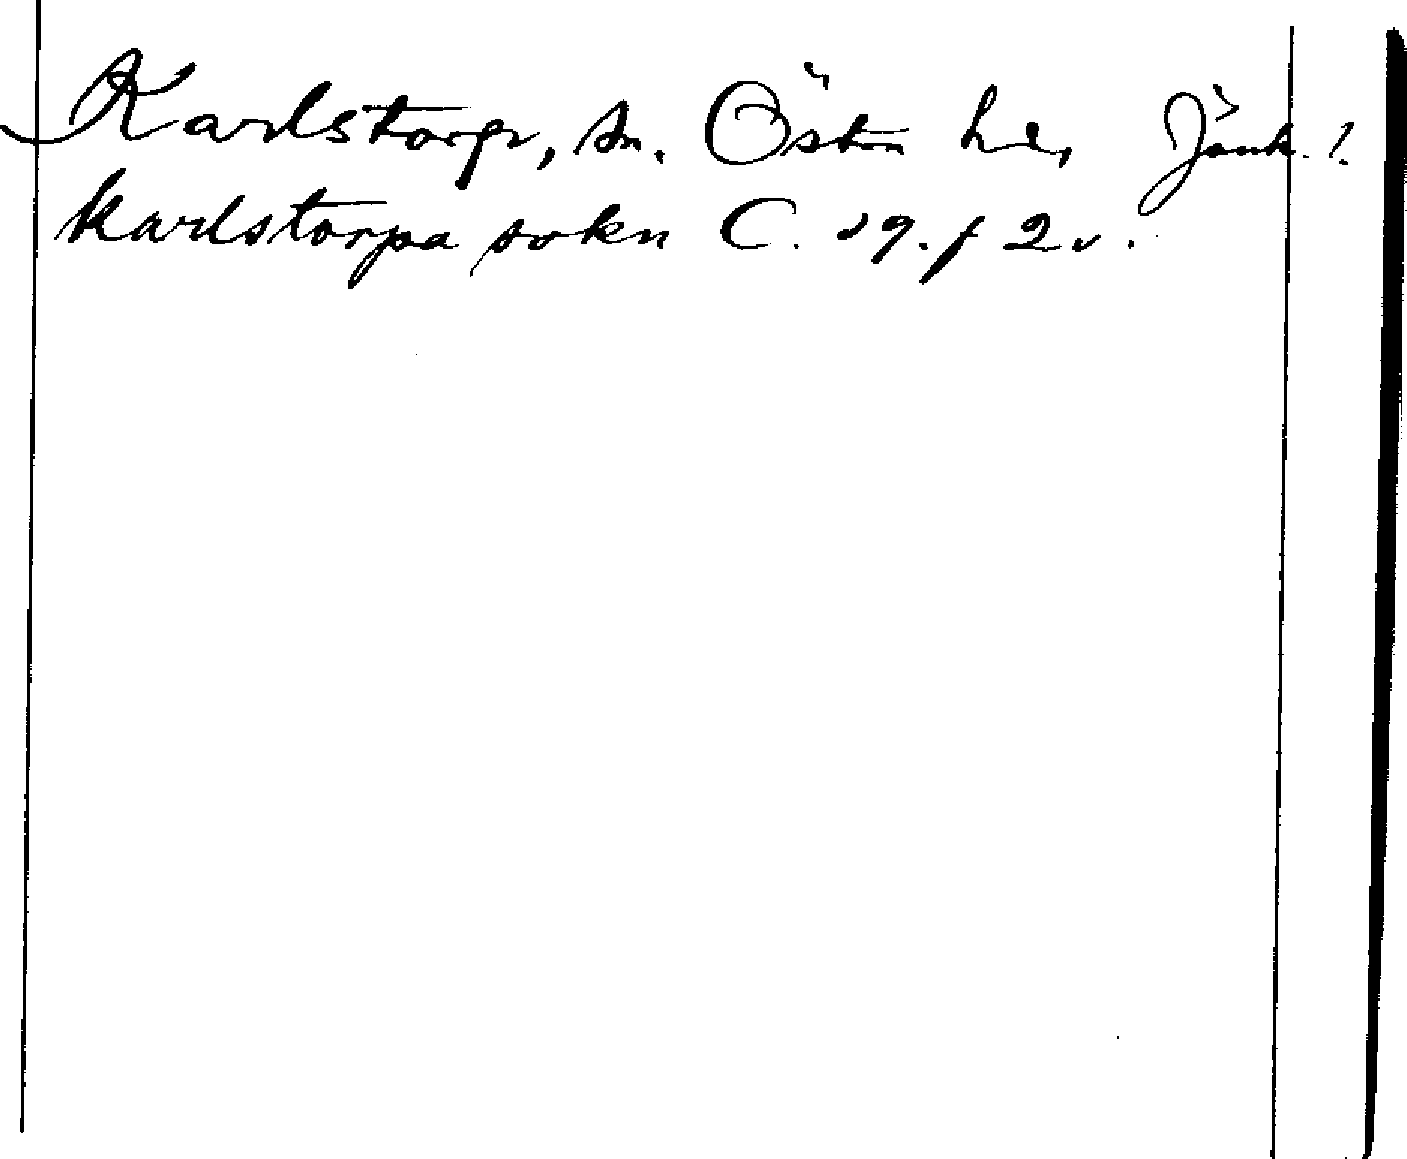 Karlstorp, sn. Östra hd, Jönk. l.
karlstorpa sokn C. 29. f 2v.